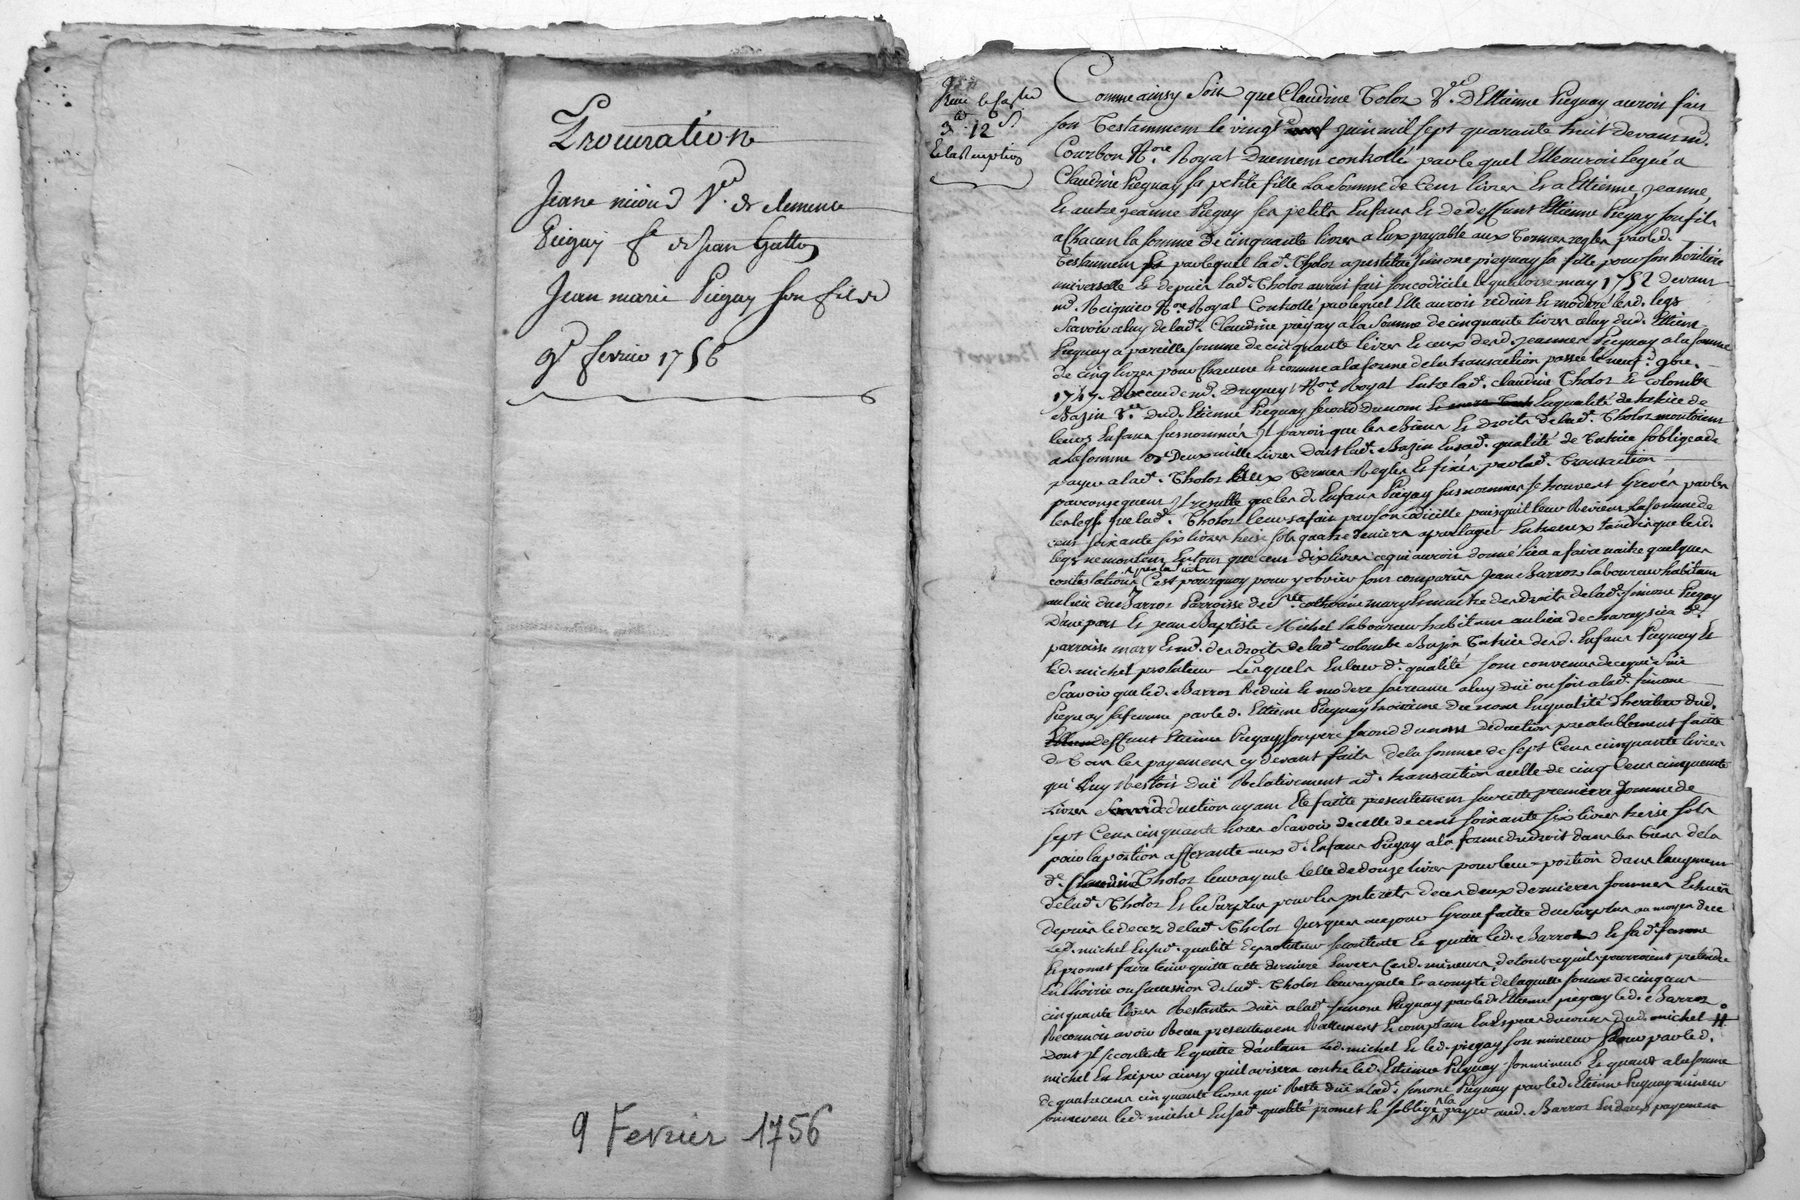 Procuration
Jeane V.ve de clemence
Piegay f.e de Jean
Jean marie Piegay son fils
9.e fevrier 1756
9 Fevrier 1756
3.# 12 s.
Comme ainsy soit que Claudine Toloz V.ve D'Ettienne Piegnay auroit fait
son Testamment le vingt Juin mil sept quarante huit devant m.e
Courbon N.re Royal Duement controllé par lequel Elle auroit legué a
Claudine Piegnay sa petite fille La Somme de Cent livres Et a Ettienne Jeanne
Et autre Jeanne Piegay ses petits Enfans Et de deffunt Ettienne Piegay son fils
a Chacun la somme de cinquante livres a Eux payable aux Termes reglés par led.
Testament par lequel lad. Tholoz a institué simone piegnay sa fille pour son heritiere
universelle Et depuis lad. Tholoz auroit fait son codicile le quatorze may 1752 devant
m.e N.re Royal Controllé par lequel Elle auroit reduit Et moderé lesd. legs
Scavoir celuy de lad. Claudine piegay a la somme de cinquante livres celuy dud. Ettienne
Piegnay a pareille somme de cinquante livres Et ceux desd. Jeannes Piegnay a la somme
de cinq livres pour Chacune Et comme a la forme de la transaction passée le neuf 9bre
1747 Receue de m.e N.re Royal Entre lad. Claudine Tholoz Et colombe
Bazin V.ve dud. Etienne Piegnay second du nom En qualité de tutrice de
leurs Enfans susnommés Il paroit que les Biens Et droits de lad. Tholoz montoient
a la somme de Deux mille Livres dont lad. Bazin En sad. qualité de Tutrice s'obligea de
payer a lad. Tholoz aux Termes Reglés Et fixés par lad. Transaction
par consequent Il resulte que lesd. Enfans Piegay susnommés se trouvent Grevés par les
legs que lad. Tholoz leurs a fait par son codicille puisqu'il leur Revient La somme de
cent soixante six livres treise sols quatre deniers a partager Entre eux Tandis que lesd.
legs ne montent En tout que cent dix livres ce qui auroit donné lieu a faire naitre quelques
contestations C'est pourquoy pour y obvier sont comparus Jean Barroz laboureur habitant
au lieu du Barroz Parroisse de S.te catherine mary Et maitre des droits de lad. simone Piegay
D'une part Et Jean Baptiste Michel laboureur habitant au lieu de
parroisse mary Et m.e des droits de lad. colombe Bazin Tutrice desd. Enfans Piegnay Et
led. michel protuteur Lesquels En lad. qualité sont convenus de ce qui suit
Scavoir que led. Barroz Reduit Et modere sa creance a luy duë ou soit a lad. simone
Piegnay sa femme par led. Ettienne Piegnay troisieme du nom En qualité d'heritier dud.
deffunt Etienne Piegay son pere second du nom deduction prealablement faitte
de Tous les payemens cy devant faits de la somme de sept Cent cinquante livres
qui luy Restoit duë Relativement a d. transaction a celle de cinq Cent cinquante
Livres deduction ayant Eté faitte presentement sur cette premiere somme de
sept Cent cinquante livres Scavoir de celle de cent soixante six livres treise sols
pour la portion afferante aux d. Enfans Piegay a la forme du droit dans les biens de la
d. Tholoz leur ayeule Celle de douze livres pour leur portion dans l'augment
de lad. Tholoz Et le surplus pour les interets de ces deux dernieres sommes Echeües
depuis le decez de lad. Tholoz Jusques au jour Grace faitte du surplus au moyen de ce
Led. michel En sad. qualité de protuteur se contente Et quitte led. Barroz Et sad. femme
Et promet faire tenir quitte cette derniere Envers lesd. mineurs de tout ce qu'ils pourroient pretendre
En l'hoirie ou succession de lad. Tholoz leur ayeule Et a compte de laquelle somme de cinq cent
cinquante livres Restantes duës a lad. simone Piegnay par led. Ettienne piegay led. Barroz
Reconnoit avoir Receu presentement Reellement Et comptant En Especes de cours dud. michel #
Dont Il se contente Et quitte d'autant led. michel Et led. piegay son mineur sauf par led.
michel En Exiper ainsy qu'il avisera contre led. Ettienne Piegnay son mineur Et quant a la somme
de quatre cent cinquante livres qui Reste duë a lad. simone Piegnay par led. Etienne Piegnay mineur
led. michel En sad. qualité promet Et s'oblige la payer aud. Barroz En deux payemens